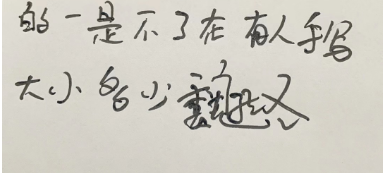 的一是不了在有人手写
大小多少